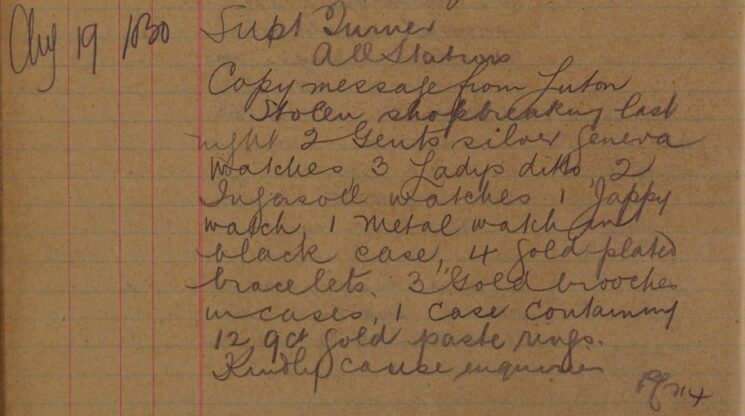 Aug 19 1030 Supt Turner
All Stations
Copy message from Luton
Stolen shopbreaking last
night 2 Gents silver Geneva
Watches, 3 Ladys ditto, 2
Ingersoll watches 1 Jappy
watch, 1 metal watch and
black case, 4 Gold plated
bracelets, 3 Gold brooches
in cases, 1 case containing
12, 9ct gold paste rings.
Kindly cause enquiries